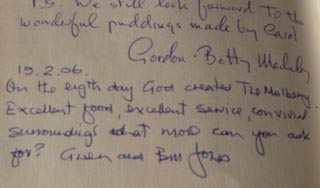 PS We still look forward To the
wonderful puddings made by Carol
Gordon & Betty
19.2.06.
On the eigth day God created The Malberry.
Excellent food, excellent service, convivial
surroundings what more can you ask
for? Gwen and Bill Jones